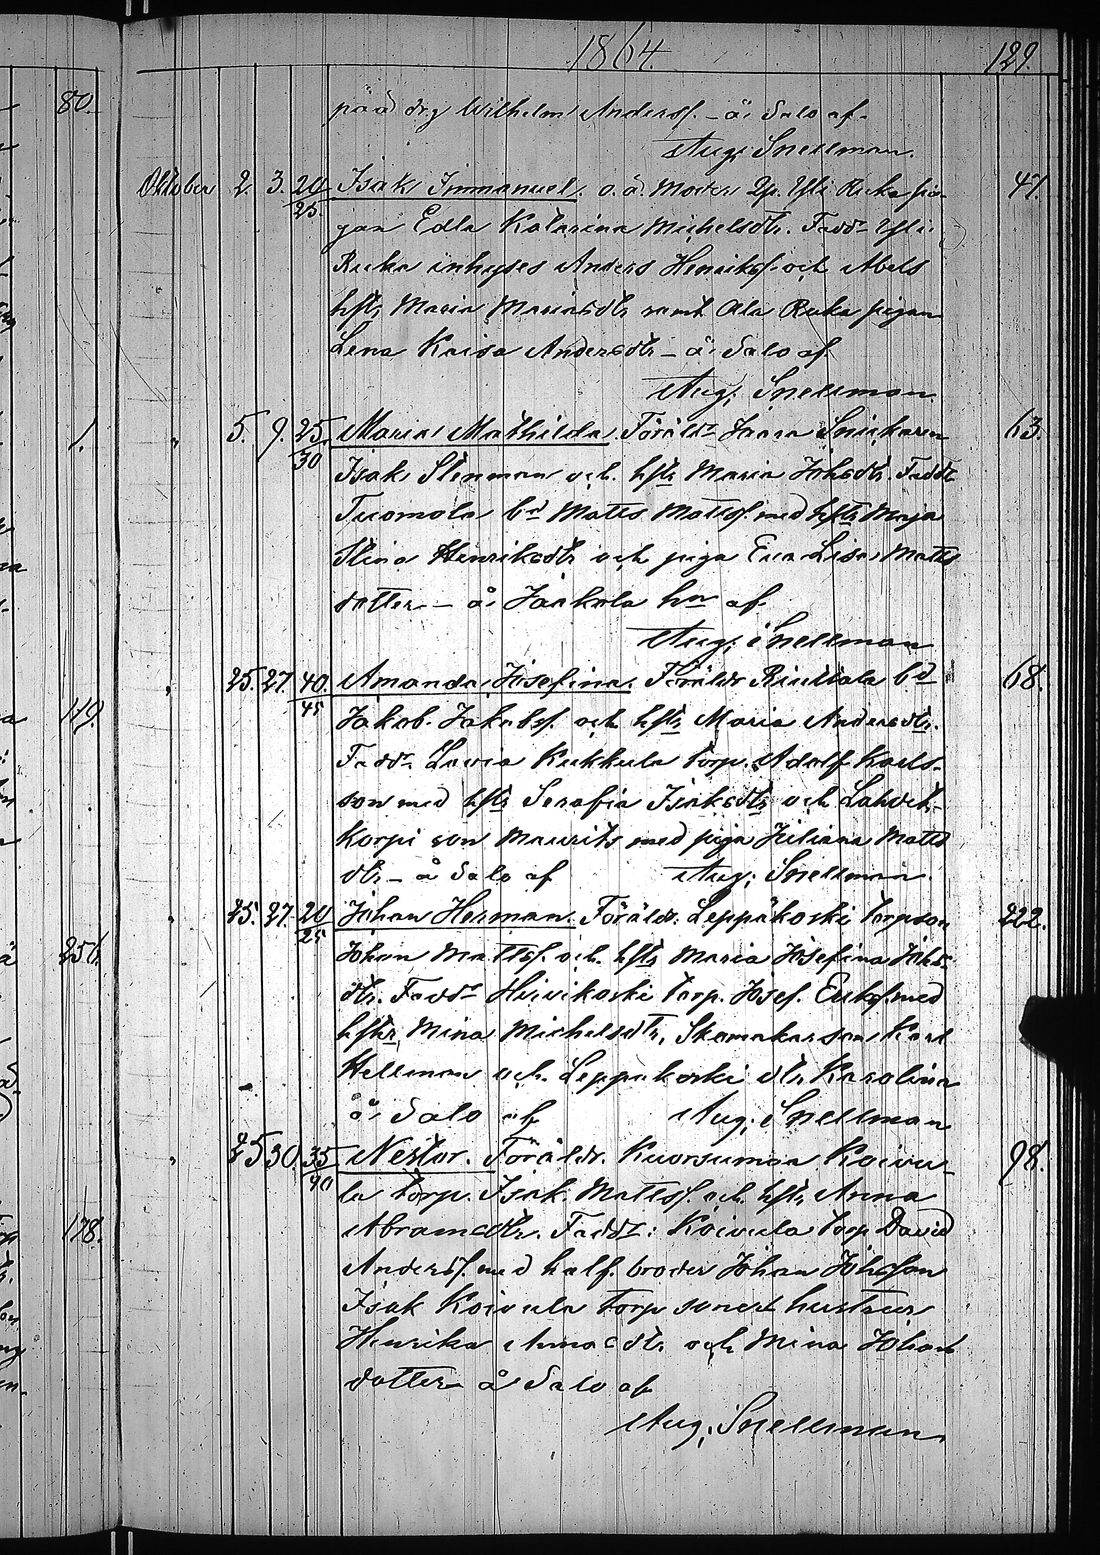 1864. 129.
på d drg Wilhelm Anderss. – å Salo af
Aug. Snellman.
Oktober 2. 3. 20/25. Isak Immanuel. o. ä. Moder Yli Ruka pi- 47.
gan Edla Katarina Michelsdtr. Fadd. Yli
Ruka inhyses Anders Henrikss. och Abels
hstr Maria Mariasdtr samt Ala Ruka pigan
Lena Kaisa Andersdtr – å Salo af
Aug. Snellman.
" 5. 9. 25./30 Maria Mathilda. Föräldr Jaara Snickaren 63.
Isak Stenman och hstr Maria Johsdtr. Fadd.
Tuomola bd Matts Mattss. med hstr Maja
Stina Henriksdtr och piga Eva Lisa Matts
dotter – å Jaakola hn af
Aug. Snellman
" 25. 27. 40./45 Amanda Josefina. Föräldr Riuttala bd 68.
Jakob Jakobss. och hstr Maria Andersdtr.
Fadd. Lavia Kukkula torp. Adolf Karls-
son med hstr Serafia Isaksdtr och Lahdek-
korpi son Maurits med piga Juliana Matts
dtr – å Salo af Aug. Snellman.
" 25. 27. 20/25 Johan Herman. Föräldr. Leppäkoski torpson 222.
Johan Mattss. och hstr Maria Josefina Johs-
dtr. Fadd. Hirvikoski torp. Josef Eriks. med
hstr Mina Michelsdtr, Skomakarson Karl
Hellman och Leppäkoski dtr. Karolina
å Salo af Aug. Snellman
" 25 30 35/40 Nestor. Föräldr. Kuorsuman Koivu- 98.
la torp. Isak Mattss. och hstr Anna
Abramsdtr. Fadd.: Koivula torp David
Anderss. med half. broder Johan Johsson
Isak Koivula torp sonens hustrur
Henrika Annasdtr och Mina Johans
dotter å Salo af
Aug. Snellman.
80.
1.
119.
256.
178.